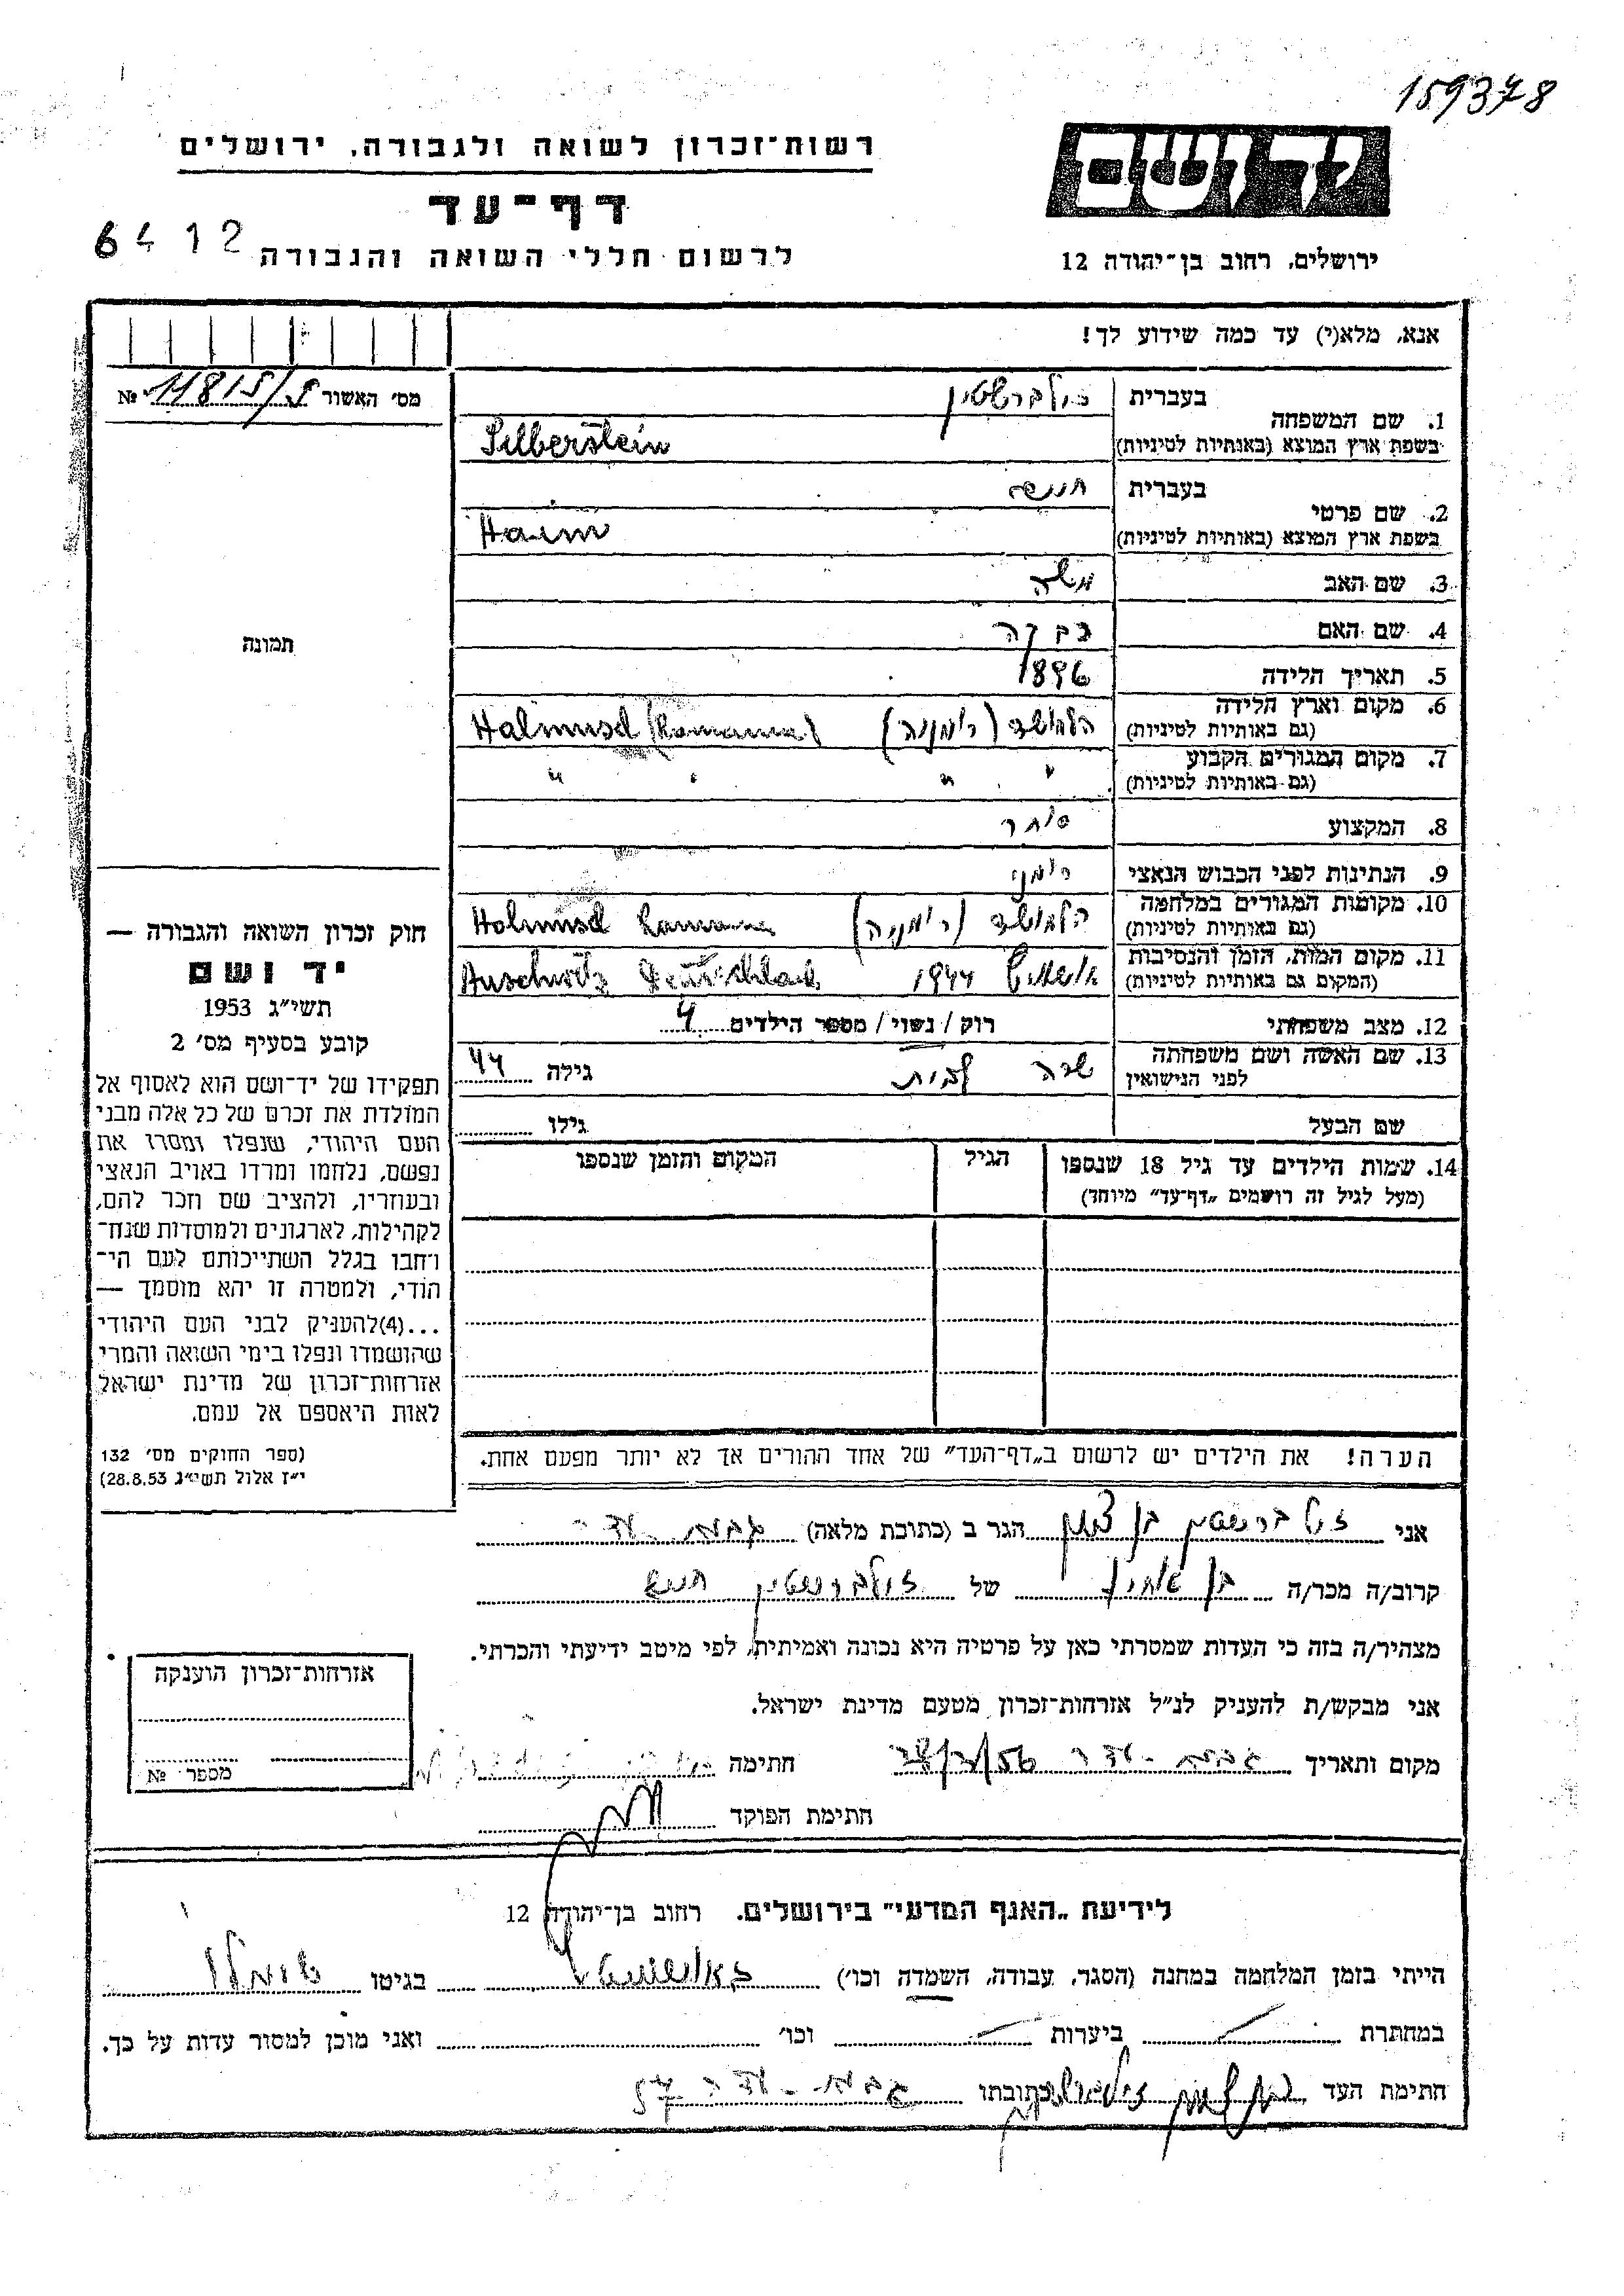 159378
רשות־זכרון לשואה ולגבורה, ירושלים
יד ושם
דף־עד
6412
לרשום חללי השואה והגבורה
ירושלים, רחוב בן־יהודה 12
אנא, מלא(י) עד כמה שידוע לך!
מס' האשור № 11815/5
1. שם המשפחה בעברית זילברשטין
בשפת ארץ המוצא (באותיות לטיניות) Silberstein
2. שם פרטי בעברית חיים
בשפת ארץ המוצא (באותיות לטיניות) Haim
3. שם האב משה
4. שם האם
5. תאריך הלידה 1896
6. מקום וארץ הלידה (גם באותיות לטיניות) (רומניה) Halmusd (Romania)
7. מקום המגורים הקבוע (גם באותיות לטיניות) " " " "
8. המקצוע סוחר
9. הנתינות לפני הכבוש הנאצי רומני
10. מקומות המגורים במלחמה (גם באותיות לטיניות) (רומניה) Holmusd Romania
11. מקום המות, הזמן והנסיבות (המקום גם באותיות לטיניות) 1944 Auschwitz
12. מצב משפחתי רוק / נשוי / מספר הילדים 4
13. שם האשה ושם משפחתה לפני הנישואין שרה גילה 44
שם הבעל גילו
14. שמות הילדים עד גיל 18 שנספו הגיל המקום והזמן שנספו
(מעל לגיל זה רושמים „דף־עד" מיוחד)
הערה! את הילדים יש לרשום ב„דף־העד" של אחד ההורים אך לא יותר מפעם אחת.
תמונה
חוק זכרון השואה והגבורה —
יד ושם
תשי"ג 1953
קובע בסעיף מס' 2
תפקידו של יד־ושם הוא לאסוף אל
המולדת את זכרם של כל אלה מבני
העם היהודי, שנפלו ומסרו את
נפשם, נלחמו ומרדו באויב הנאצי
ובעוזריו, ולהציב שם וזכר להם,
לקהילות, לארגונים ולמוסדות שנח־
רבו בגלל השתייכותם לעם הי־
הודי, ולמטרה זו יהא מוסמך —
...(4)להעניק לבני העם היהודי
שהושמדו ונפלו בימי השואה והמרי
אזרחות־זכרון של מדינת ישראל
לאות היאספם אל עמם.
(ספר החוקים מס' 132
י"ז אלול תשי"ג 28.8.53)
אני זילברשטין בן ציון הגר ב (כתובת מלאה) גבעת־עדה
קרוב/ה מכר/ה בן אחיו של זילברשטין חיים
מצהיר/ה בזה כי העדות שמסרתי כאן על פרטיה היא נכונה ואמיתית, לפי מיטב ידיעתי והכרתי.
אני מבקש/ת להעניק לנ"ל אזרחות־זכרון מטעם מדינת ישראל.
מקום ותאריך גבעת־עדה חתימה
חתימת הפוקד
אזרחות־זכרון הוענקה
מספר №
לידיעת „האגף המדעי" בירושלים, רחוב בן־יהודה 12
הייתי בזמן המלחמה במחנה (הסגר, עבודה, השמדה וכו') בגיטו
במחתרת ביערות וכו' ואני מוכן למסור עדות על כך.
חתימת העד בן ציון זילברשטין כתובתו גבעת־עדה 57